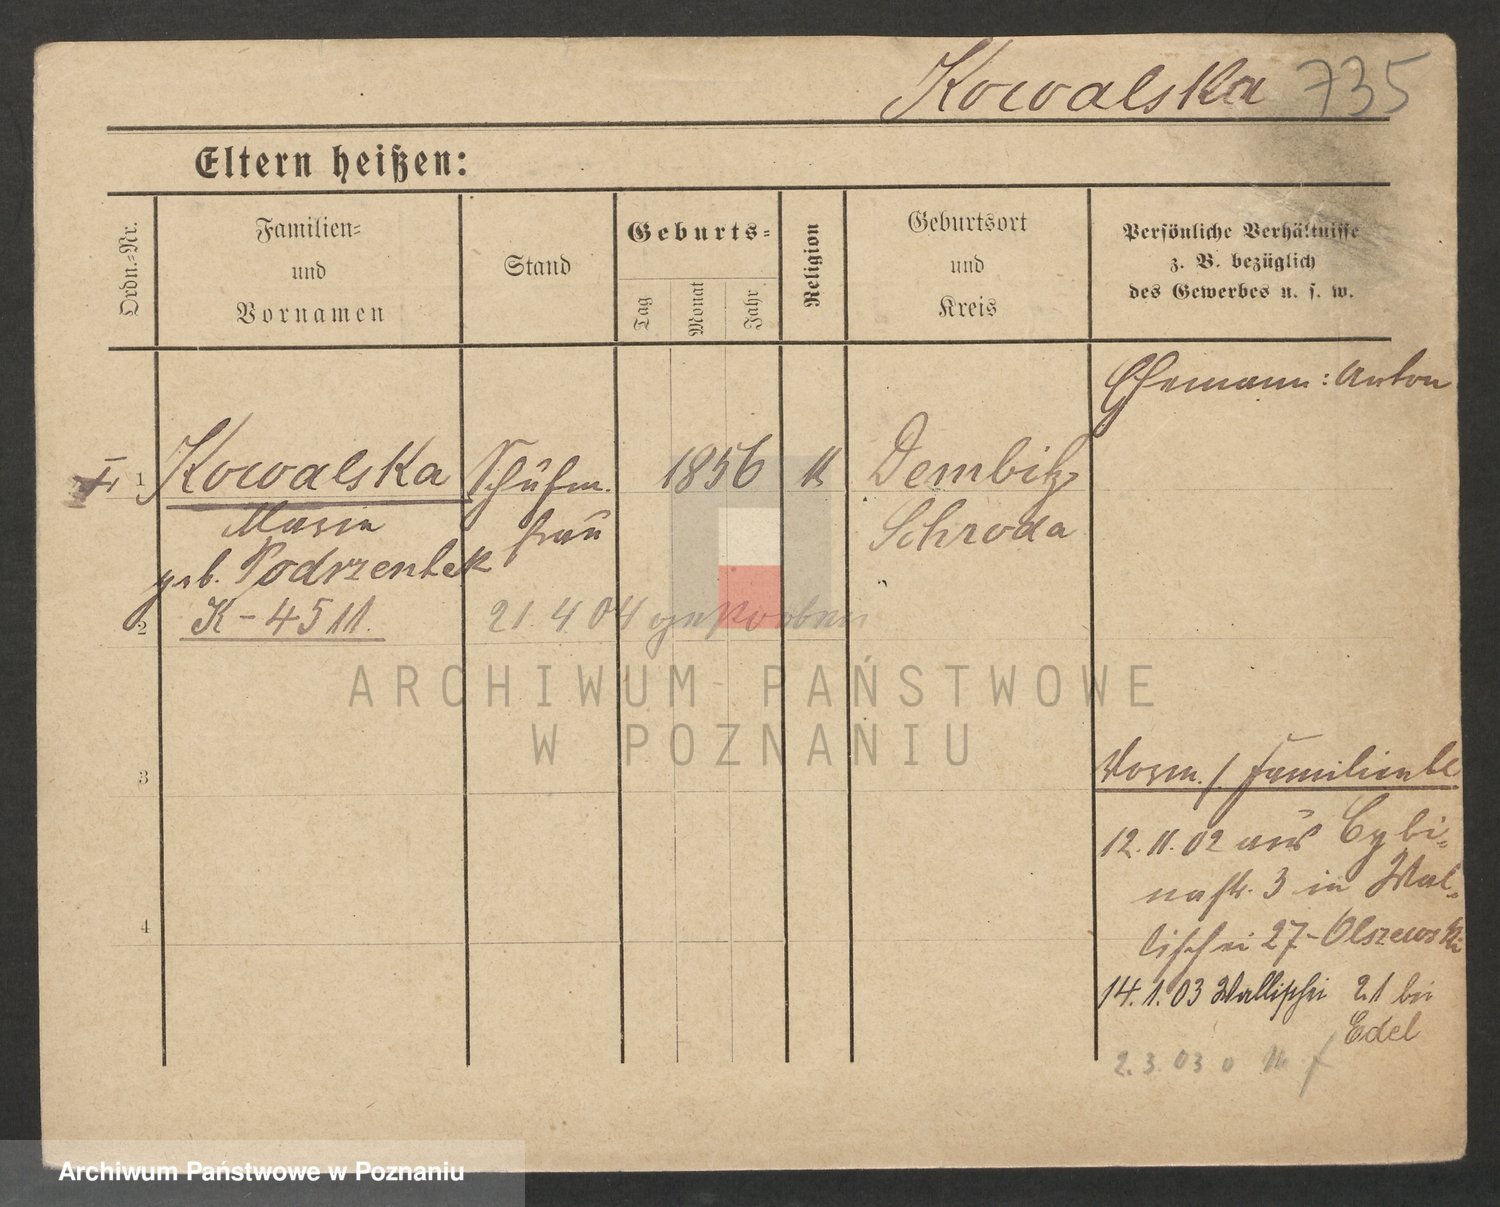 Kowalska 735
Eltern heißen:
Ordn.-Nr.
Familien-
und
Vornamen
Stand
Geburts-
Tag
Monat
Jahr
Religion
Geburtsort
und
Kreis
Persönliche Verhältnisse
z. B. bezüglich
des Gewerbes u. s. w.
Ehemann: Anton
1 Kowalska Schuhm. 1856 k Dembitz
Maria frau Schroda
geb. Podrzentek
2 K-4511. 21.4.04 gestorben
ARCHIWUM PAŃSTWOWE
W POZNANIU
3
Familienbl
12.11.02 aus Cybi-
nastr. 3 in Wal-
lischei 27-Olszewski
4
14.1.03 Wallischei 21 bei
Edel
2.3.03
Archiwum Państwowe w Poznaniu